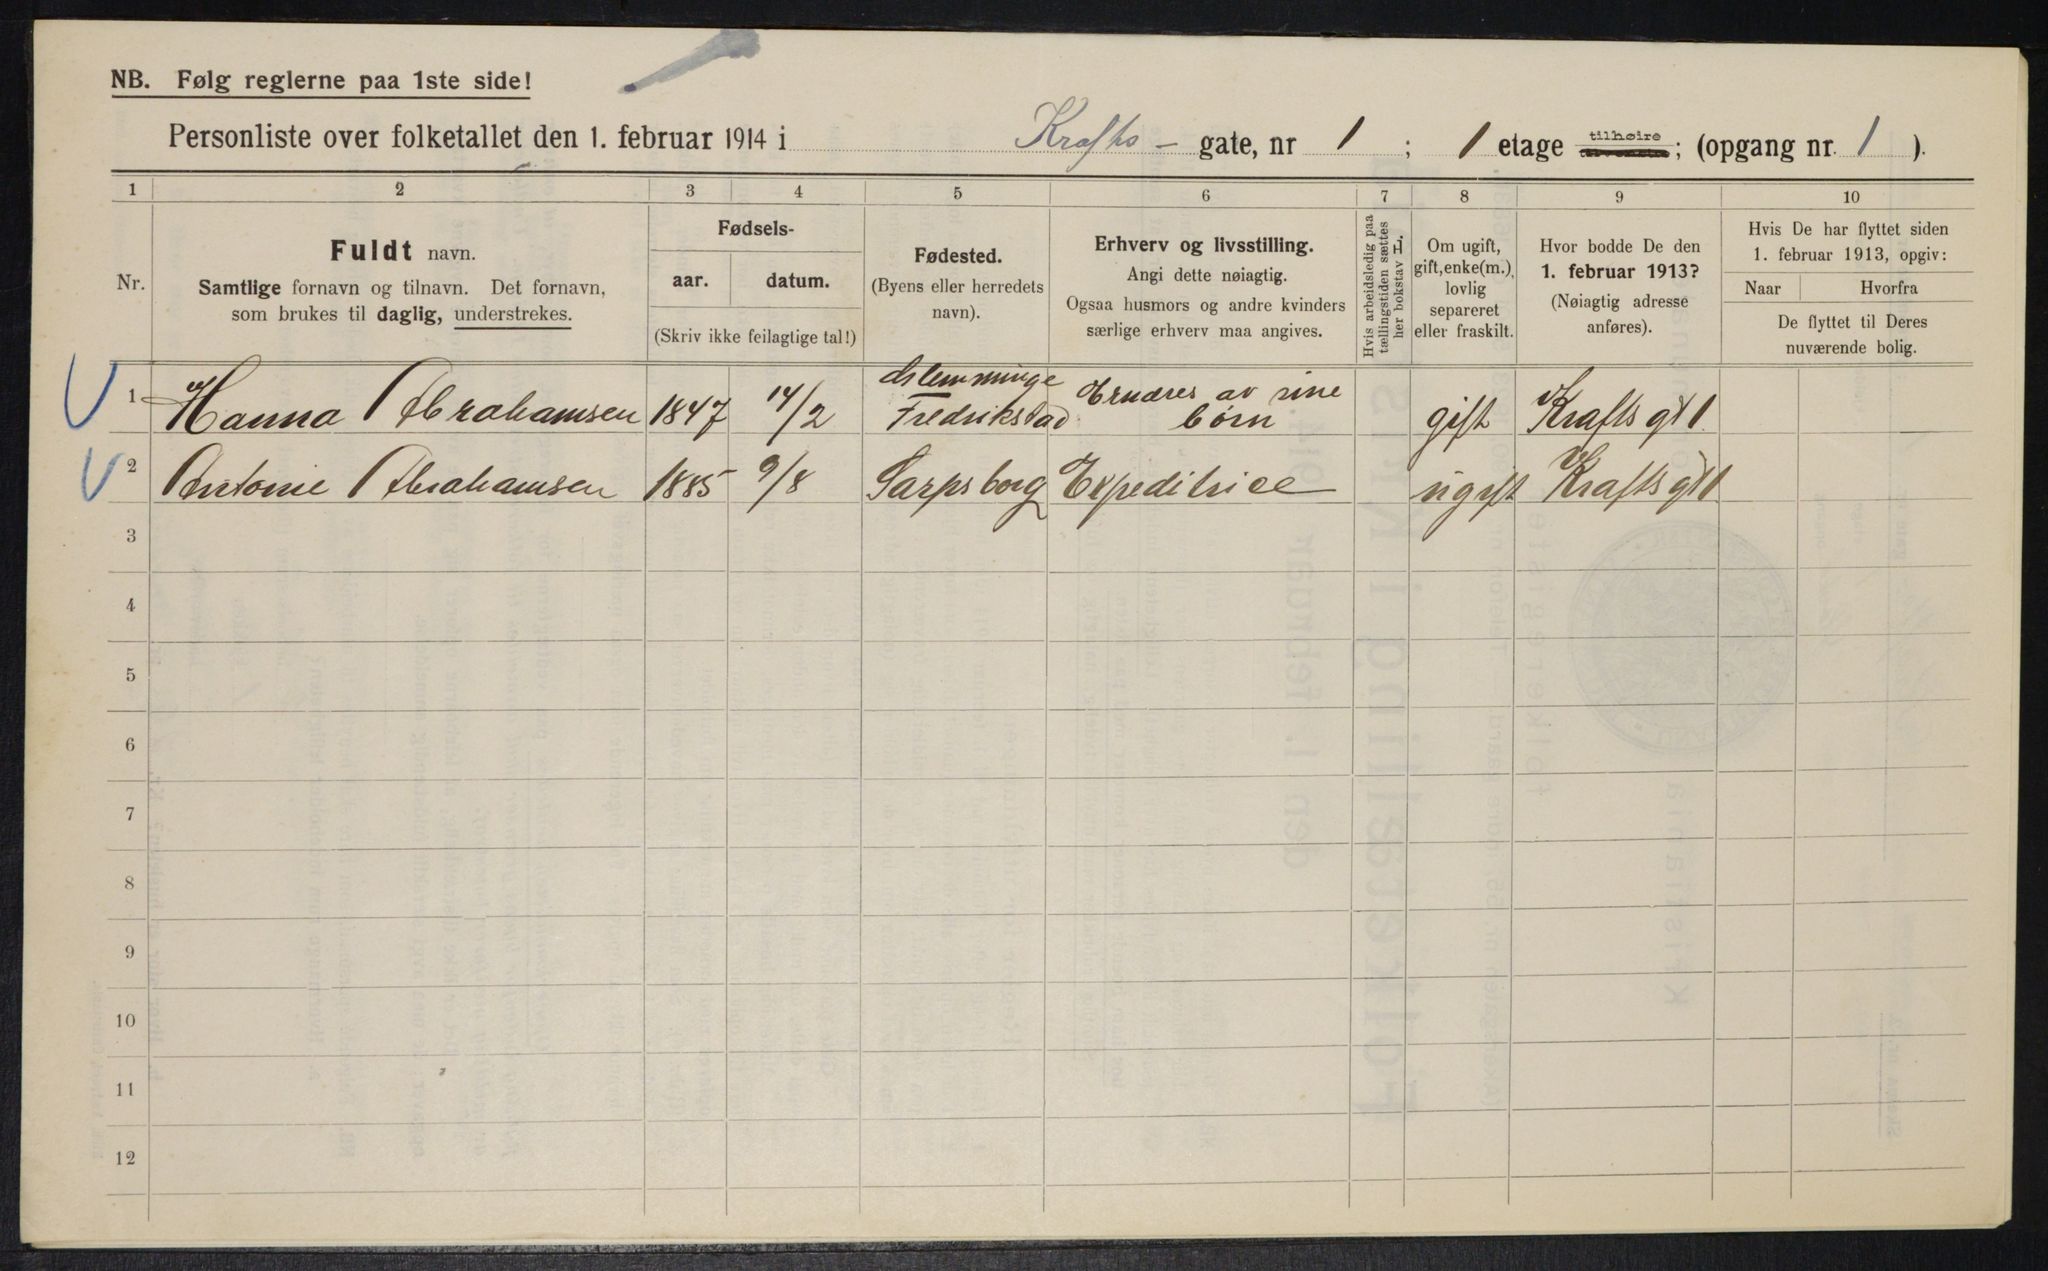 NB. Følg reglerne paa 1ste side!
Personliste over folketallet den 1. februar 1914 i Krafts - gate, nr 1 ; 1 etage tilhøire ; (opgang nr. 1 ).
1 2 3 4 5 6 7 8 9 10
Nr.
Fuldt navn.
Samtlige fornavn og tilnavn. Det fornavn,
som brukes til daglig, understrekes.
Fødsels-
aar. datum.
(Skriv ikke feilagtige tal!)
Fødested.
(Byens eller herredets
navn).
Erhverv og livsstilling.
Angi dette nøiagtig.
Ogsaa husmors og andre kvinders
særlige erhverv maa angives.
Hvis arbeidsledig paa
tællingstiden sættes
her bokstav L.
Om ugift,
gift, enke(m.),
lovlig
separeret
eller fraskilt.
Hvor bodde De den
1. februar 1913?
(Nøiagtig adresse
anføres).
Hvis De har flyttet siden
1. februar 1913, opgiv:
Naar Hvorfra
De flyttet til Deres
nuværende bolig.
1 Hanna Abrahamsen 1847 14/2 Fredrikstad Ernæres av sine børn gift Krafts gt 1
2 Antonie Abrahamsen 1885 9/8 Sarpsborg Expeditrice ugift Krafts gt 1
3
4
5
6
7
8
9
10
11
12